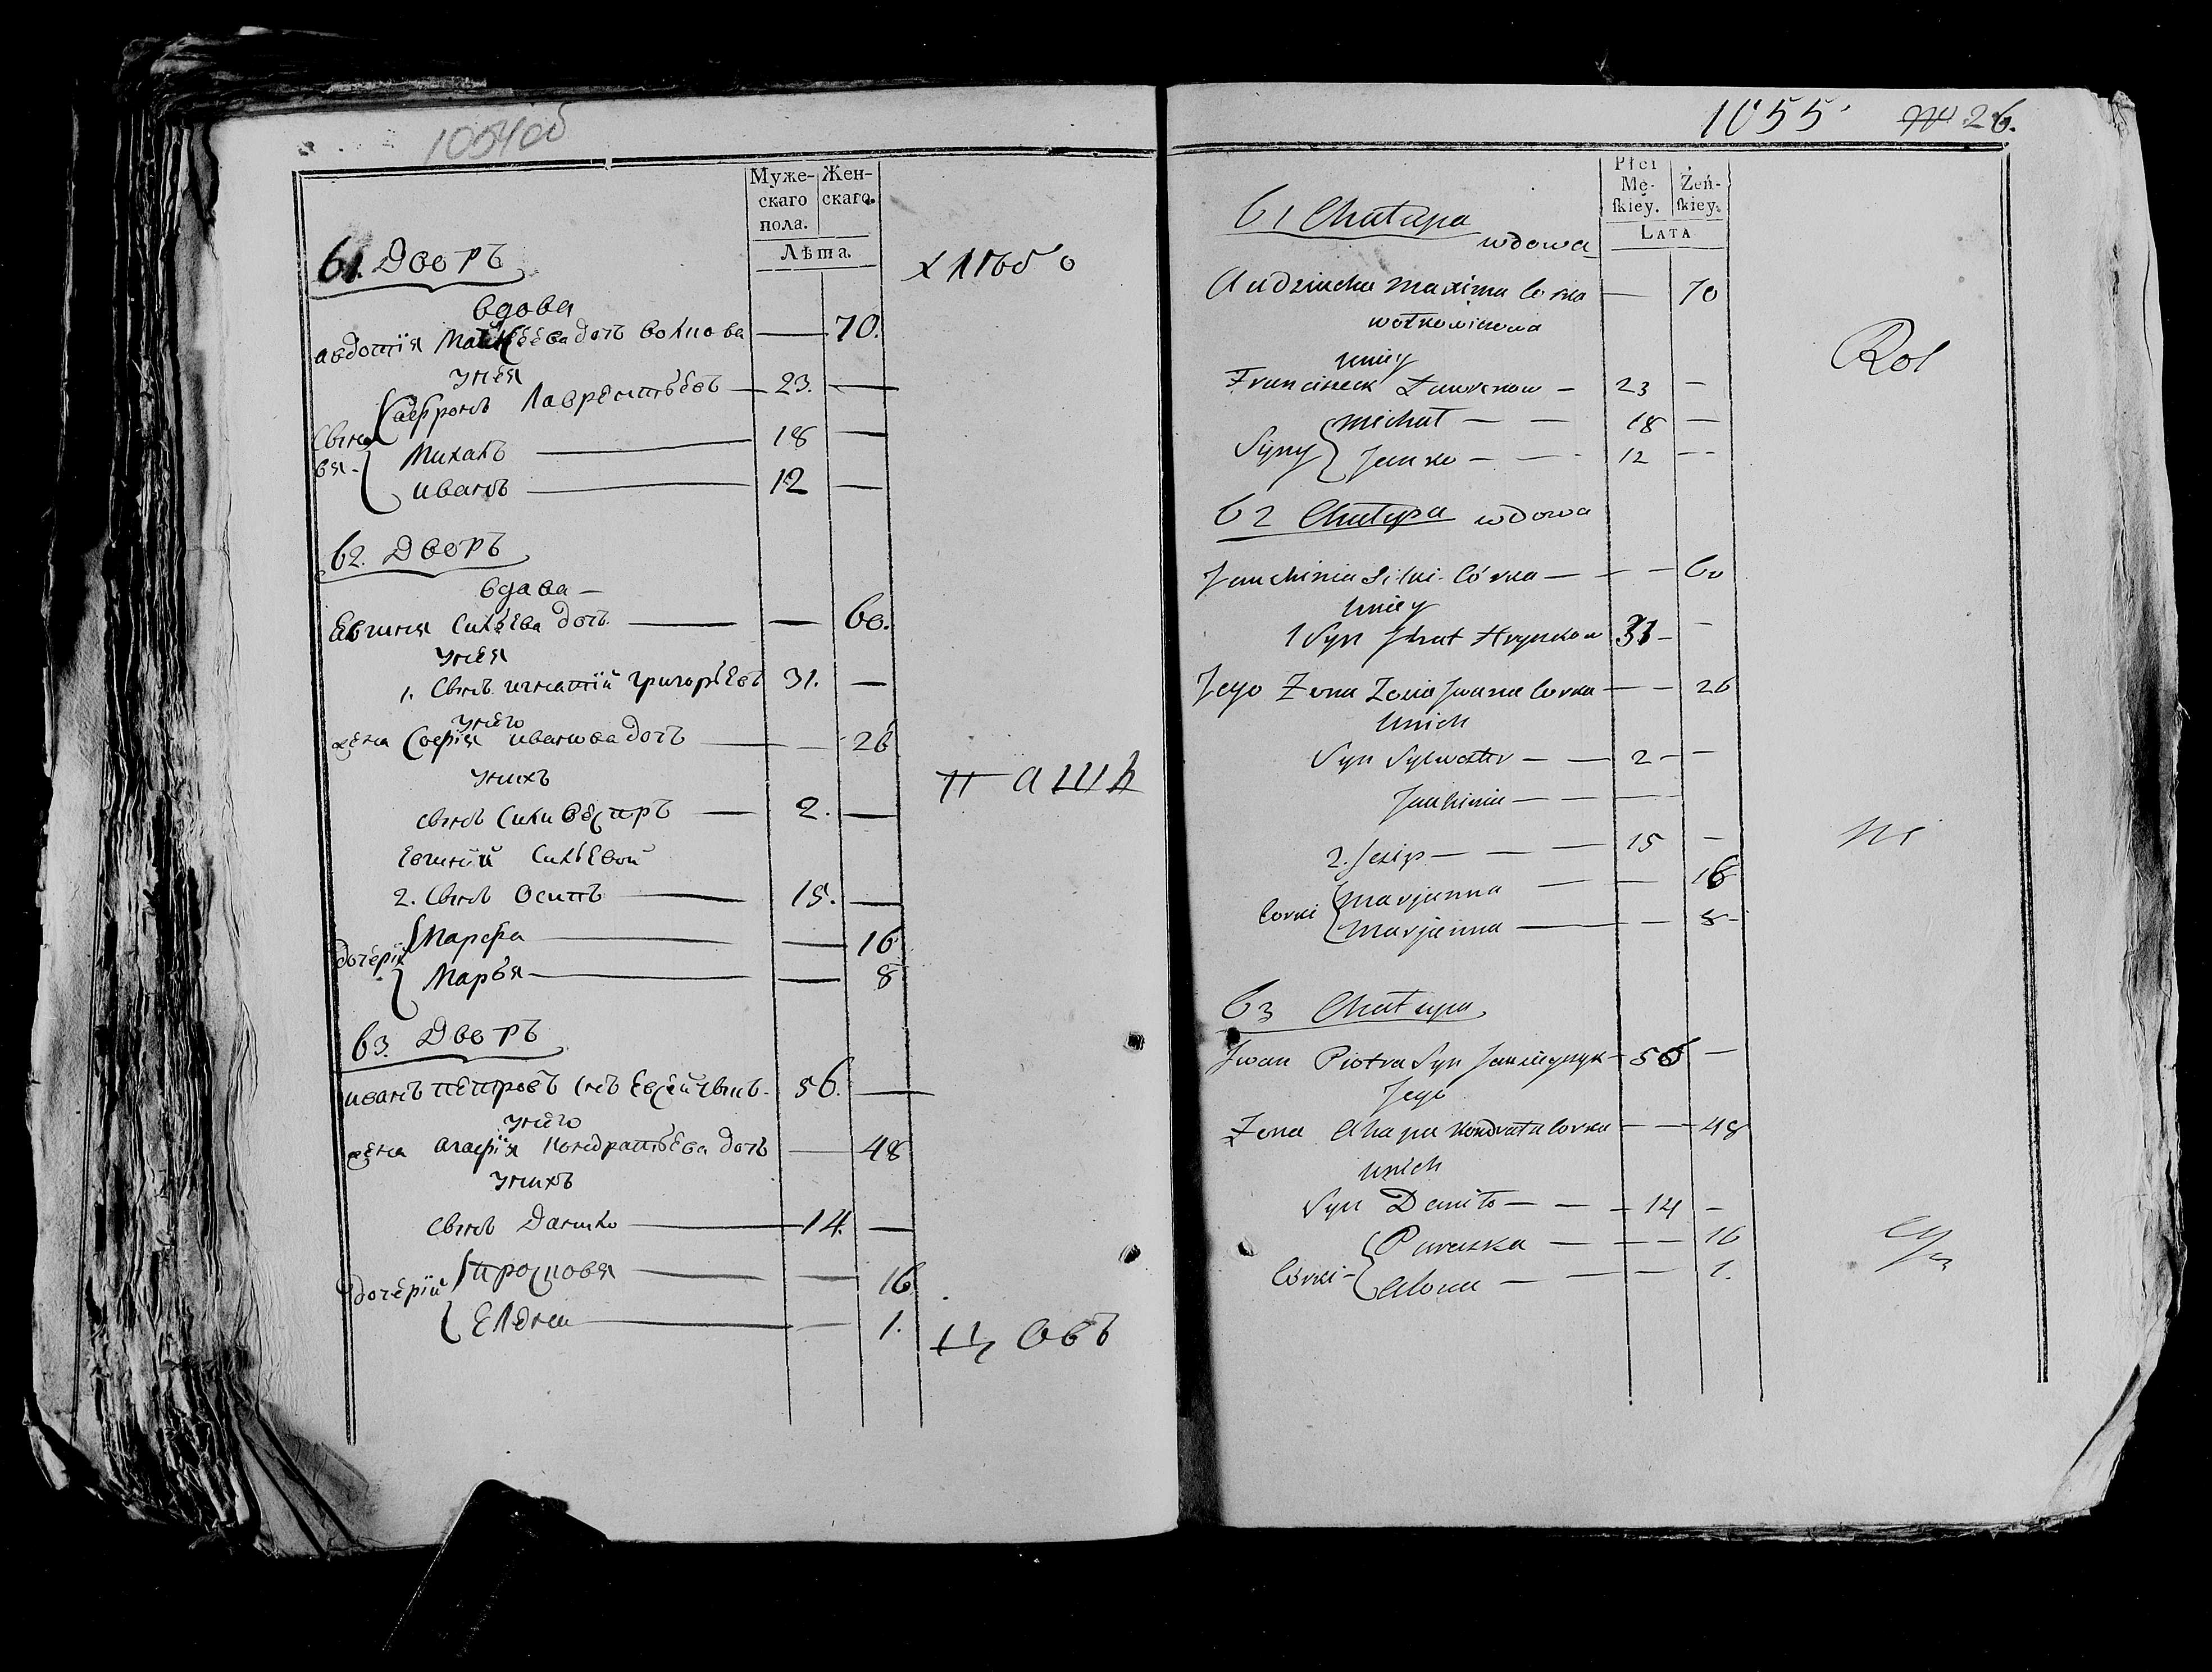 1054об
Муже-
скаго
пола.
Жен-
скаго.
Лѣта.
61. Дворъ
вдова
авдотія дочь волкова — 70.
унея
Лаврентьевъ — 23. —
Михалъ — 18 —
иванъ — 12 —
хлѣбо
62. Дворъ
вдава —
Евгиня Сильева дочь — — 60.
унея
1. Сынъ игнатій григорьевъ 31. —
унего
жена Софія иванова дочь — — 26
унихъ
сынъ Силивестръ — 2. —
Евгиніи Сильевой
2. Сынъ Осипъ — 15. —
дочерій Марфа — — 16
Марья — — 8
пашц
63. Дворъ
иванъ петровъ снъ — 56. —
унего
жена агафія кондратьева дочь — 48
унихъ
сынъ Данило — 14. —
дочерій просковя — — 16
Елена — — 1.
цовъ
1055 26.
Płci
Mę-
skiey.
Żeń-
skiey.
LATA
61 Chałupa
wdowa
Audziucha Maxima Corka — 70
wołkowiczowa
uniey
Franciszek Ławrenow — 23 —
Syny Michał — — 18 —
Janko — — 12 —
Rol
62 Chałupa wdowa
Jauchinia Silui Córka — — 60
uniey
1 Syn Jhnat Hrynkow 31 — —
Jego Zona Zosia Jwana Corka — — 26
unich
Syn Sylwester — — 2 — —
Jauhinia — — —
2. Jozip — — — 15 —
Corki Marjanna — — 16
Marjanna — — 8 —
ni
63 Chałupa
Jwan Piotra Syn — 56 —
Jego
Zona Ahapa Kondrata Corka — — 48
unich
Syn Daniło — — 14 —
Córki Paraska — — — 16
Alona — — — 1.
cy